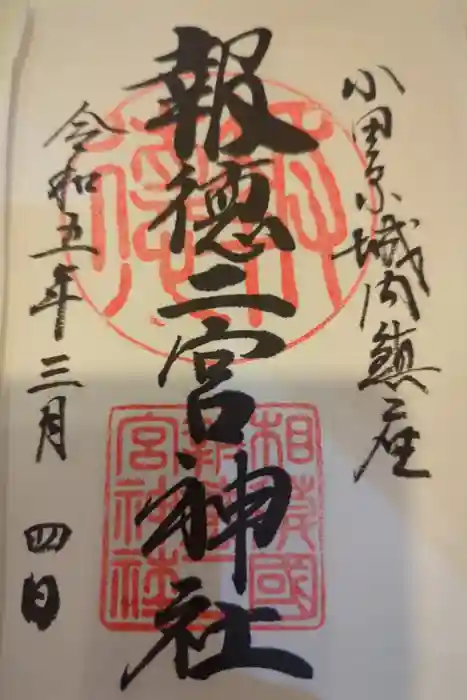 小田原城内鎮座
報徳二宮神社
令和五年三月四日
報徳
相模國
報徳二
宮神社